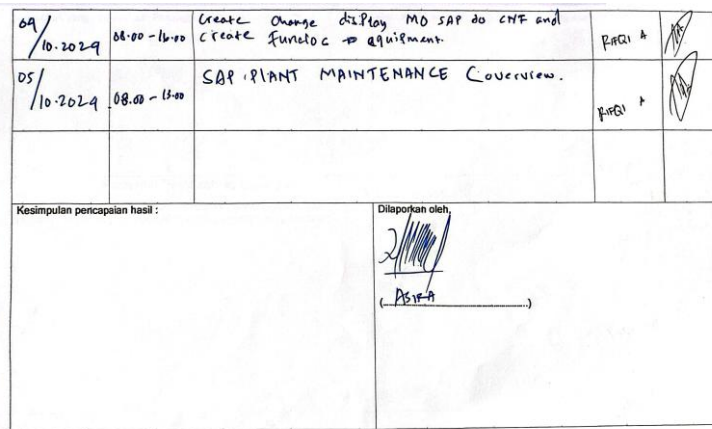 04/10.2024 08.00 - 16.00 Create Change display MO SAP do CNF and RIFQI A
create Funcloc → equipment.
05/10.2024 08.00 - 13.00 SAP PLANT MAINTENANCE Coverview. RIFQI A
Kesimpulan pencapaian hasil :
Dilaporkan oleh,
(ASIRA)